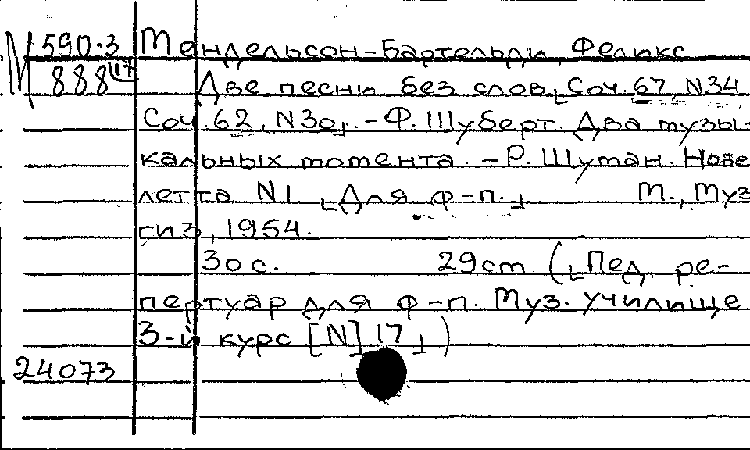 М 590-3 Мендельсон-Бартольди, Феликс
888(17 Две песни без слов, Соч. 67, N34,
Соч. 62, N30, - Ф. Шуберт. Два музы-
кальных момента. - Р. Шуман. Нове
летта N1 [Для ф-п.] М., Муз
гиз, 1954.
30 с. 29cm ([Пед. ре-
пертуар для ф-п. Муз. училище
3-й курс [N] 17])
24073